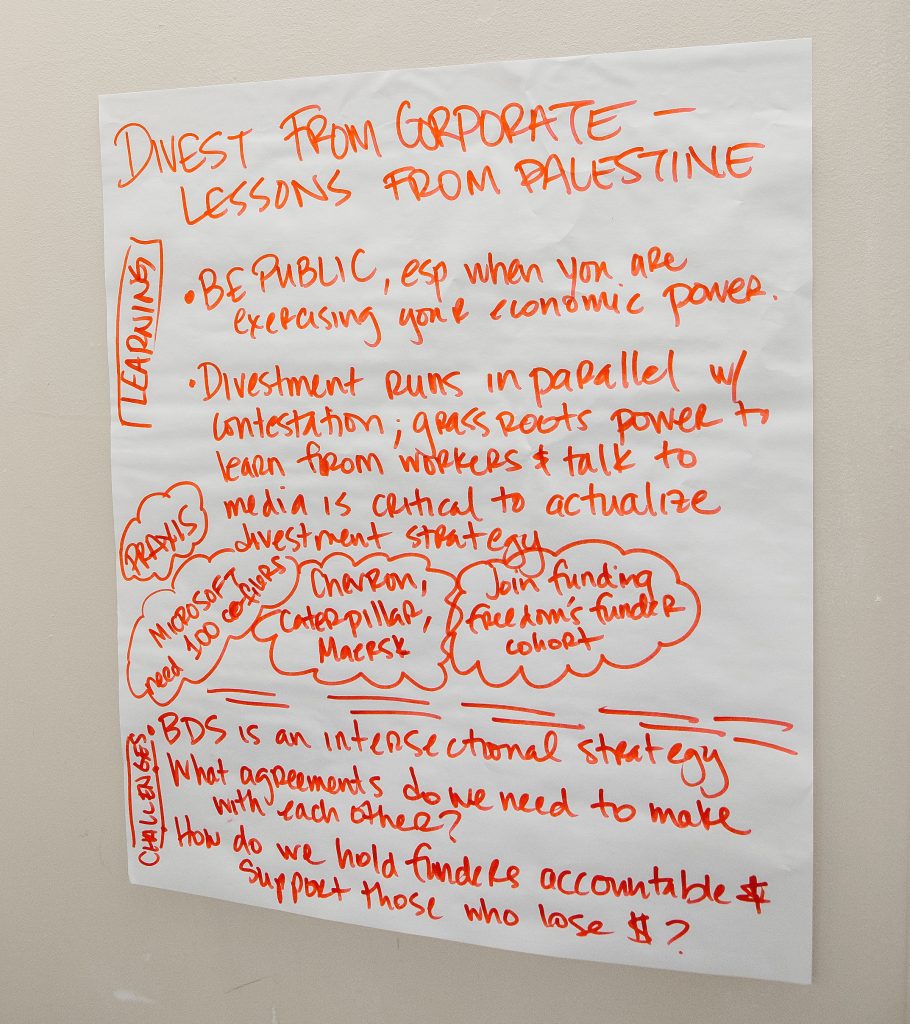 DIVEST FROM CORPORATE —
LESSONS FROM PALESTINE
LEARNING
• BE PUBLIC, esp when you are
exercising your economic power.
• Divestment runs in parallel w/
contestation; grassroots power to
learn from workers & talk to
media is critical to actualize
divestment strategy
PRAXIS
MICROSOFT
need 100 co-filers
Chevron,
Caterpillar,
Maersk
Join funding
freedom's funder
cohort
CHALLENGES
• BDS is an intersectional strategy
What agreements do we need to make
with each other?
How do we hold funders accountable &
support those who lose $?